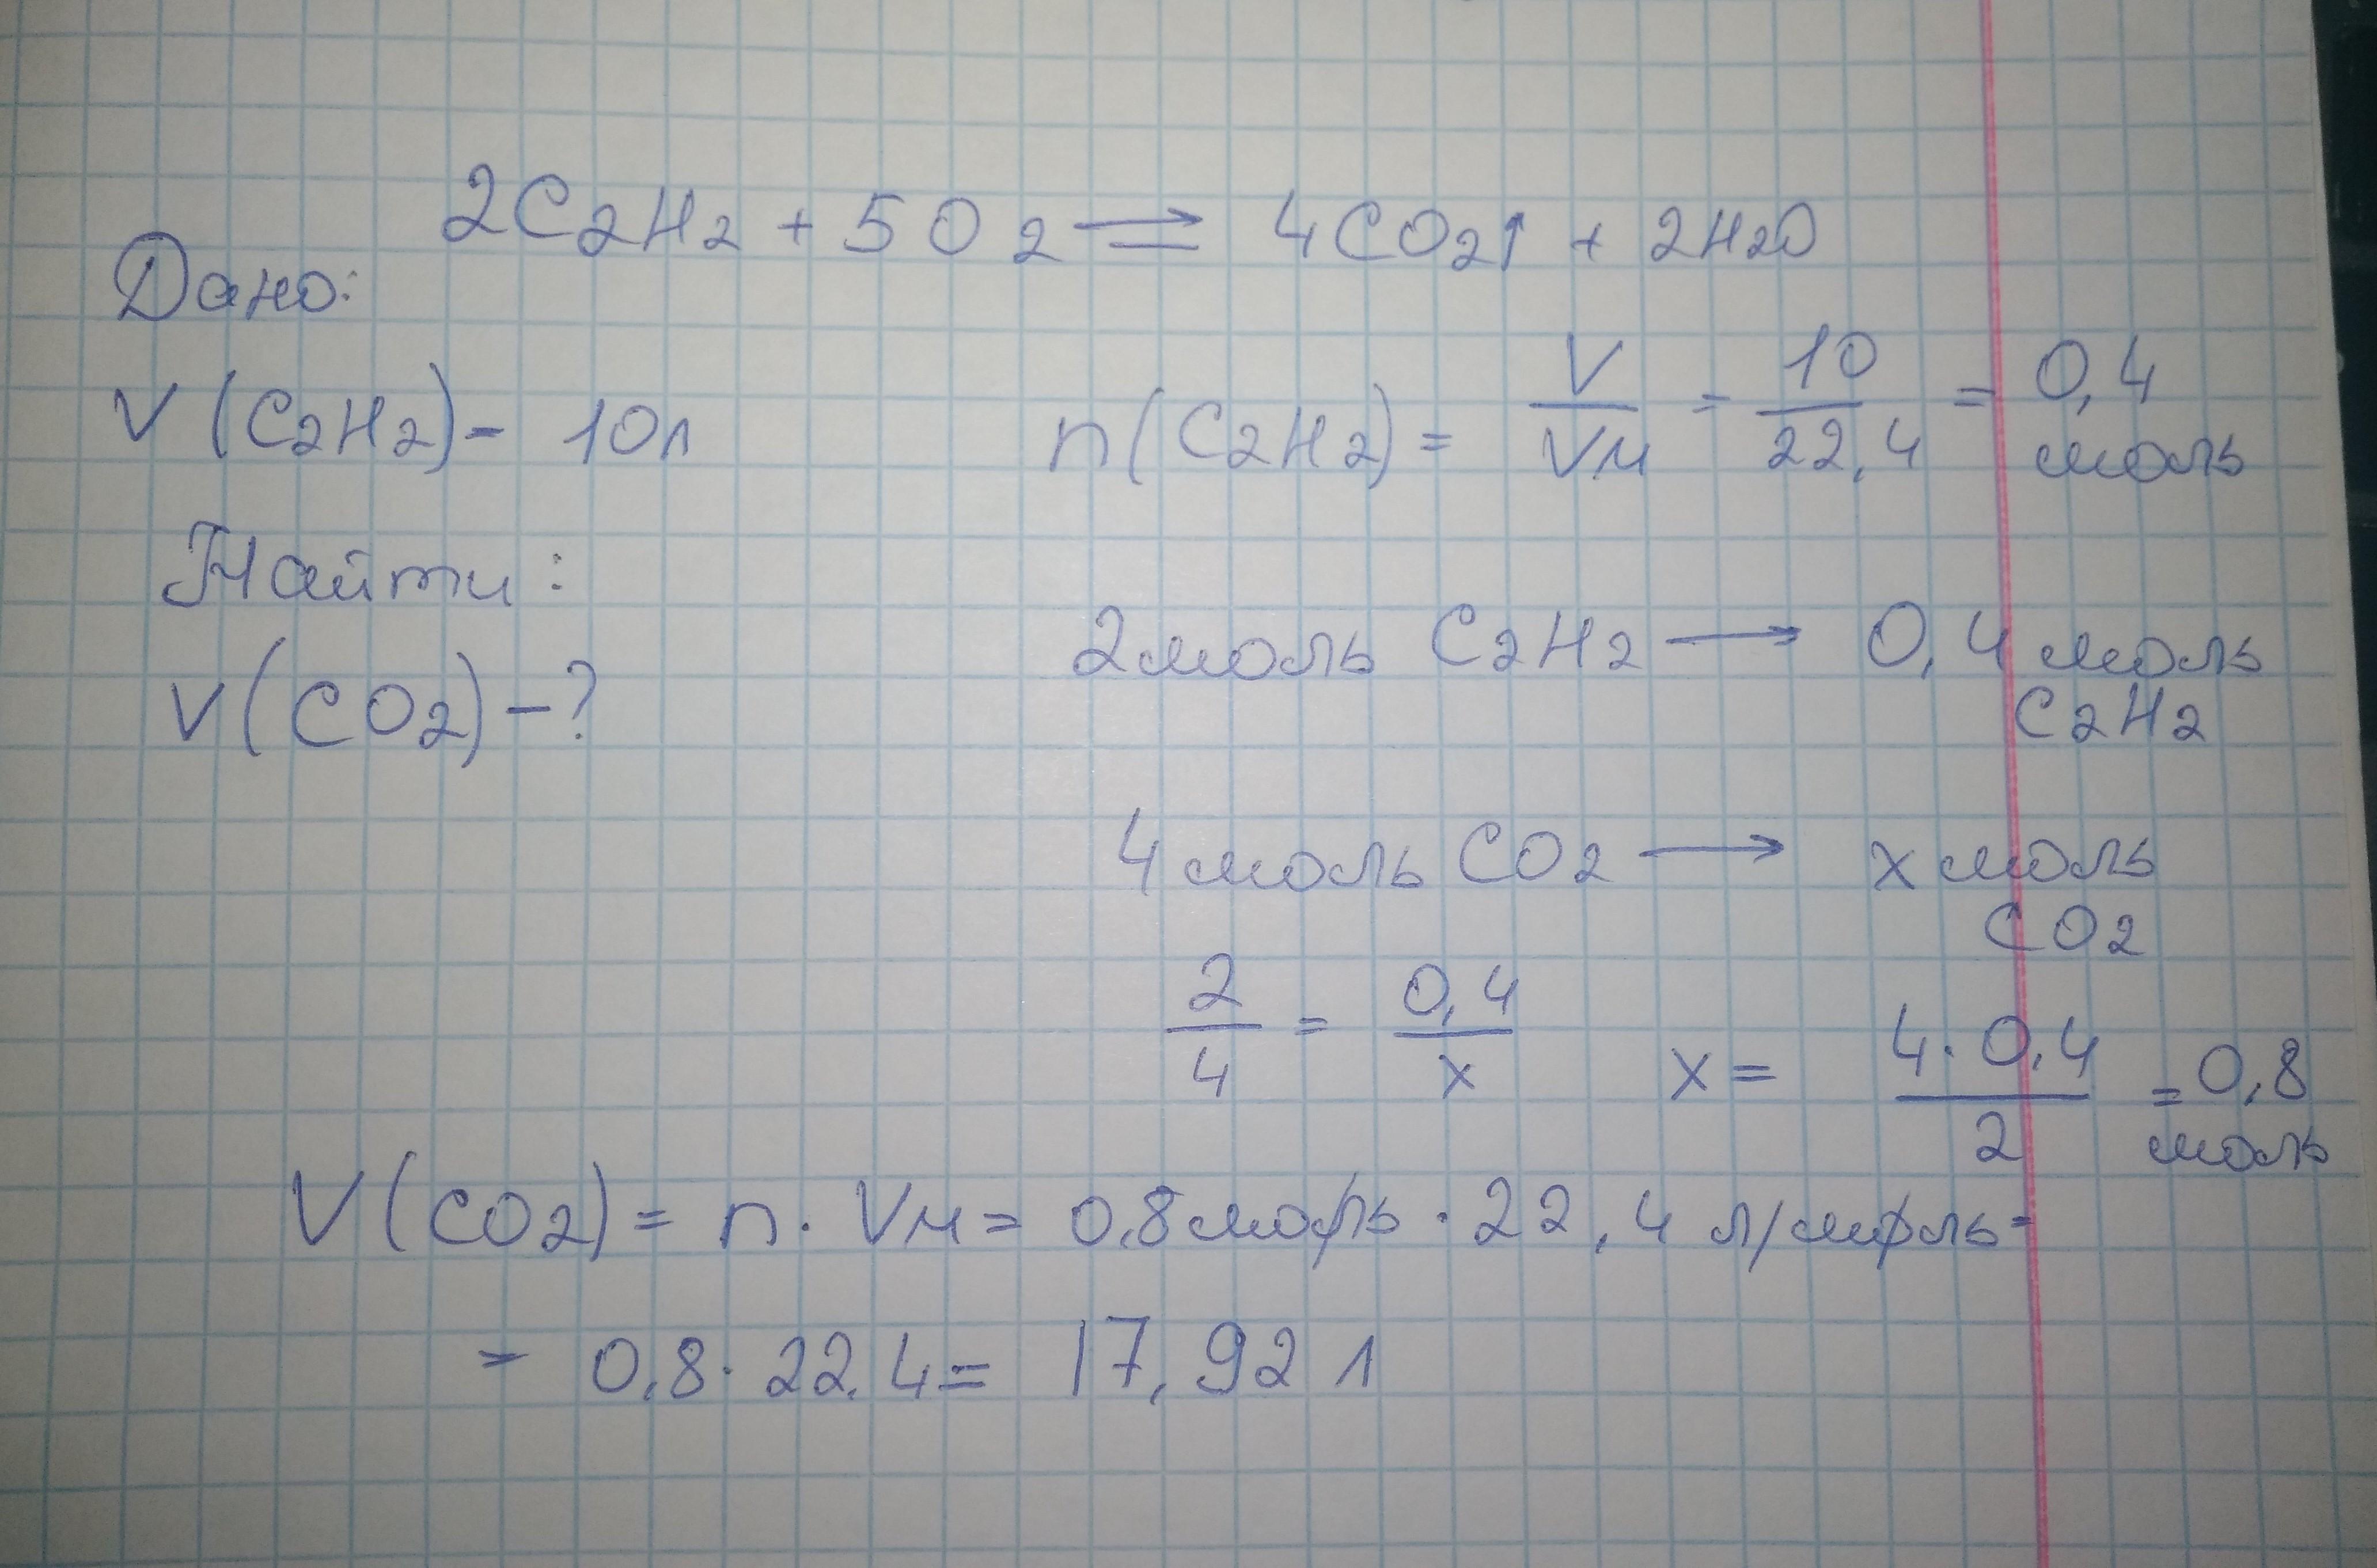 2C2H2 + 5O2 ⇒ 4CO2↑ + 2H2O
Дано:
V (C2H2) - 10л
n(C2H2) = V/Vм = 10/22,4 = 0,4 моль
Найти:
V(CO2) - ?
2 моль C2H2 → 0,4 моль C2H2
4 моль CO2 → x моль CO2
2/4 = 0,4/x x = 4·0,4/2 = 0,8 моль
V(CO2) = n · Vм = 0,8 моль · 22,4 л/моль =
= 0,8 · 22,4 = 17,92 л